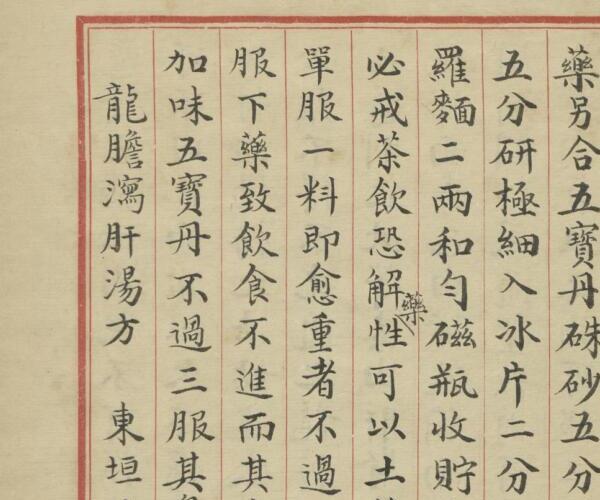 藥另合五寶丹硃砂五分
五分研極細入冰片二分
羅麵二兩和勻磁瓶收貯
必戒茶飲恐解藥性可以土
單服一料即愈重者不過
服下藥致飲食不進而其
加味五寶丹不過三服其
龍膽瀉肝湯方　東垣